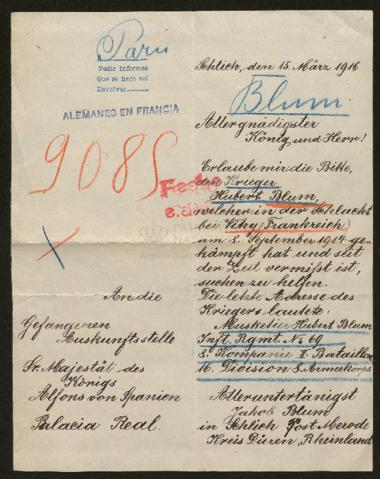 Paris
Pedir informes
Que se haco así
Devolver
ALEMANES EN FRANCIA
9085
Schlich, den 15. März 1916
Blum.
Allergnädigster
König und Herr!
Erlaube mir die Bitte,
den Krieger
Hubert Blum,
welcher in der Schlacht
bei Vitry (Frankreich)
am 8. September 1914 ge-
kämpft hat und seit
der Zeit vermißt ist,
suchen zu helfen.
Die letzte Adresse des
Kriegers lautete:
Musketier Hubert Blum
Inft. Rgmt. No 69
8. Kompanie II. Bataillon
16. Division 8. Armeekorps
Alleruntertänigst
Jakob Blum
in Schlich Post Merode
Kreis Düren, Rheinland
An die
Gefangenen
Auskunftsstelle
Sr. Majestät des
Königs
Alfons von Spanien
Palacia Redl.